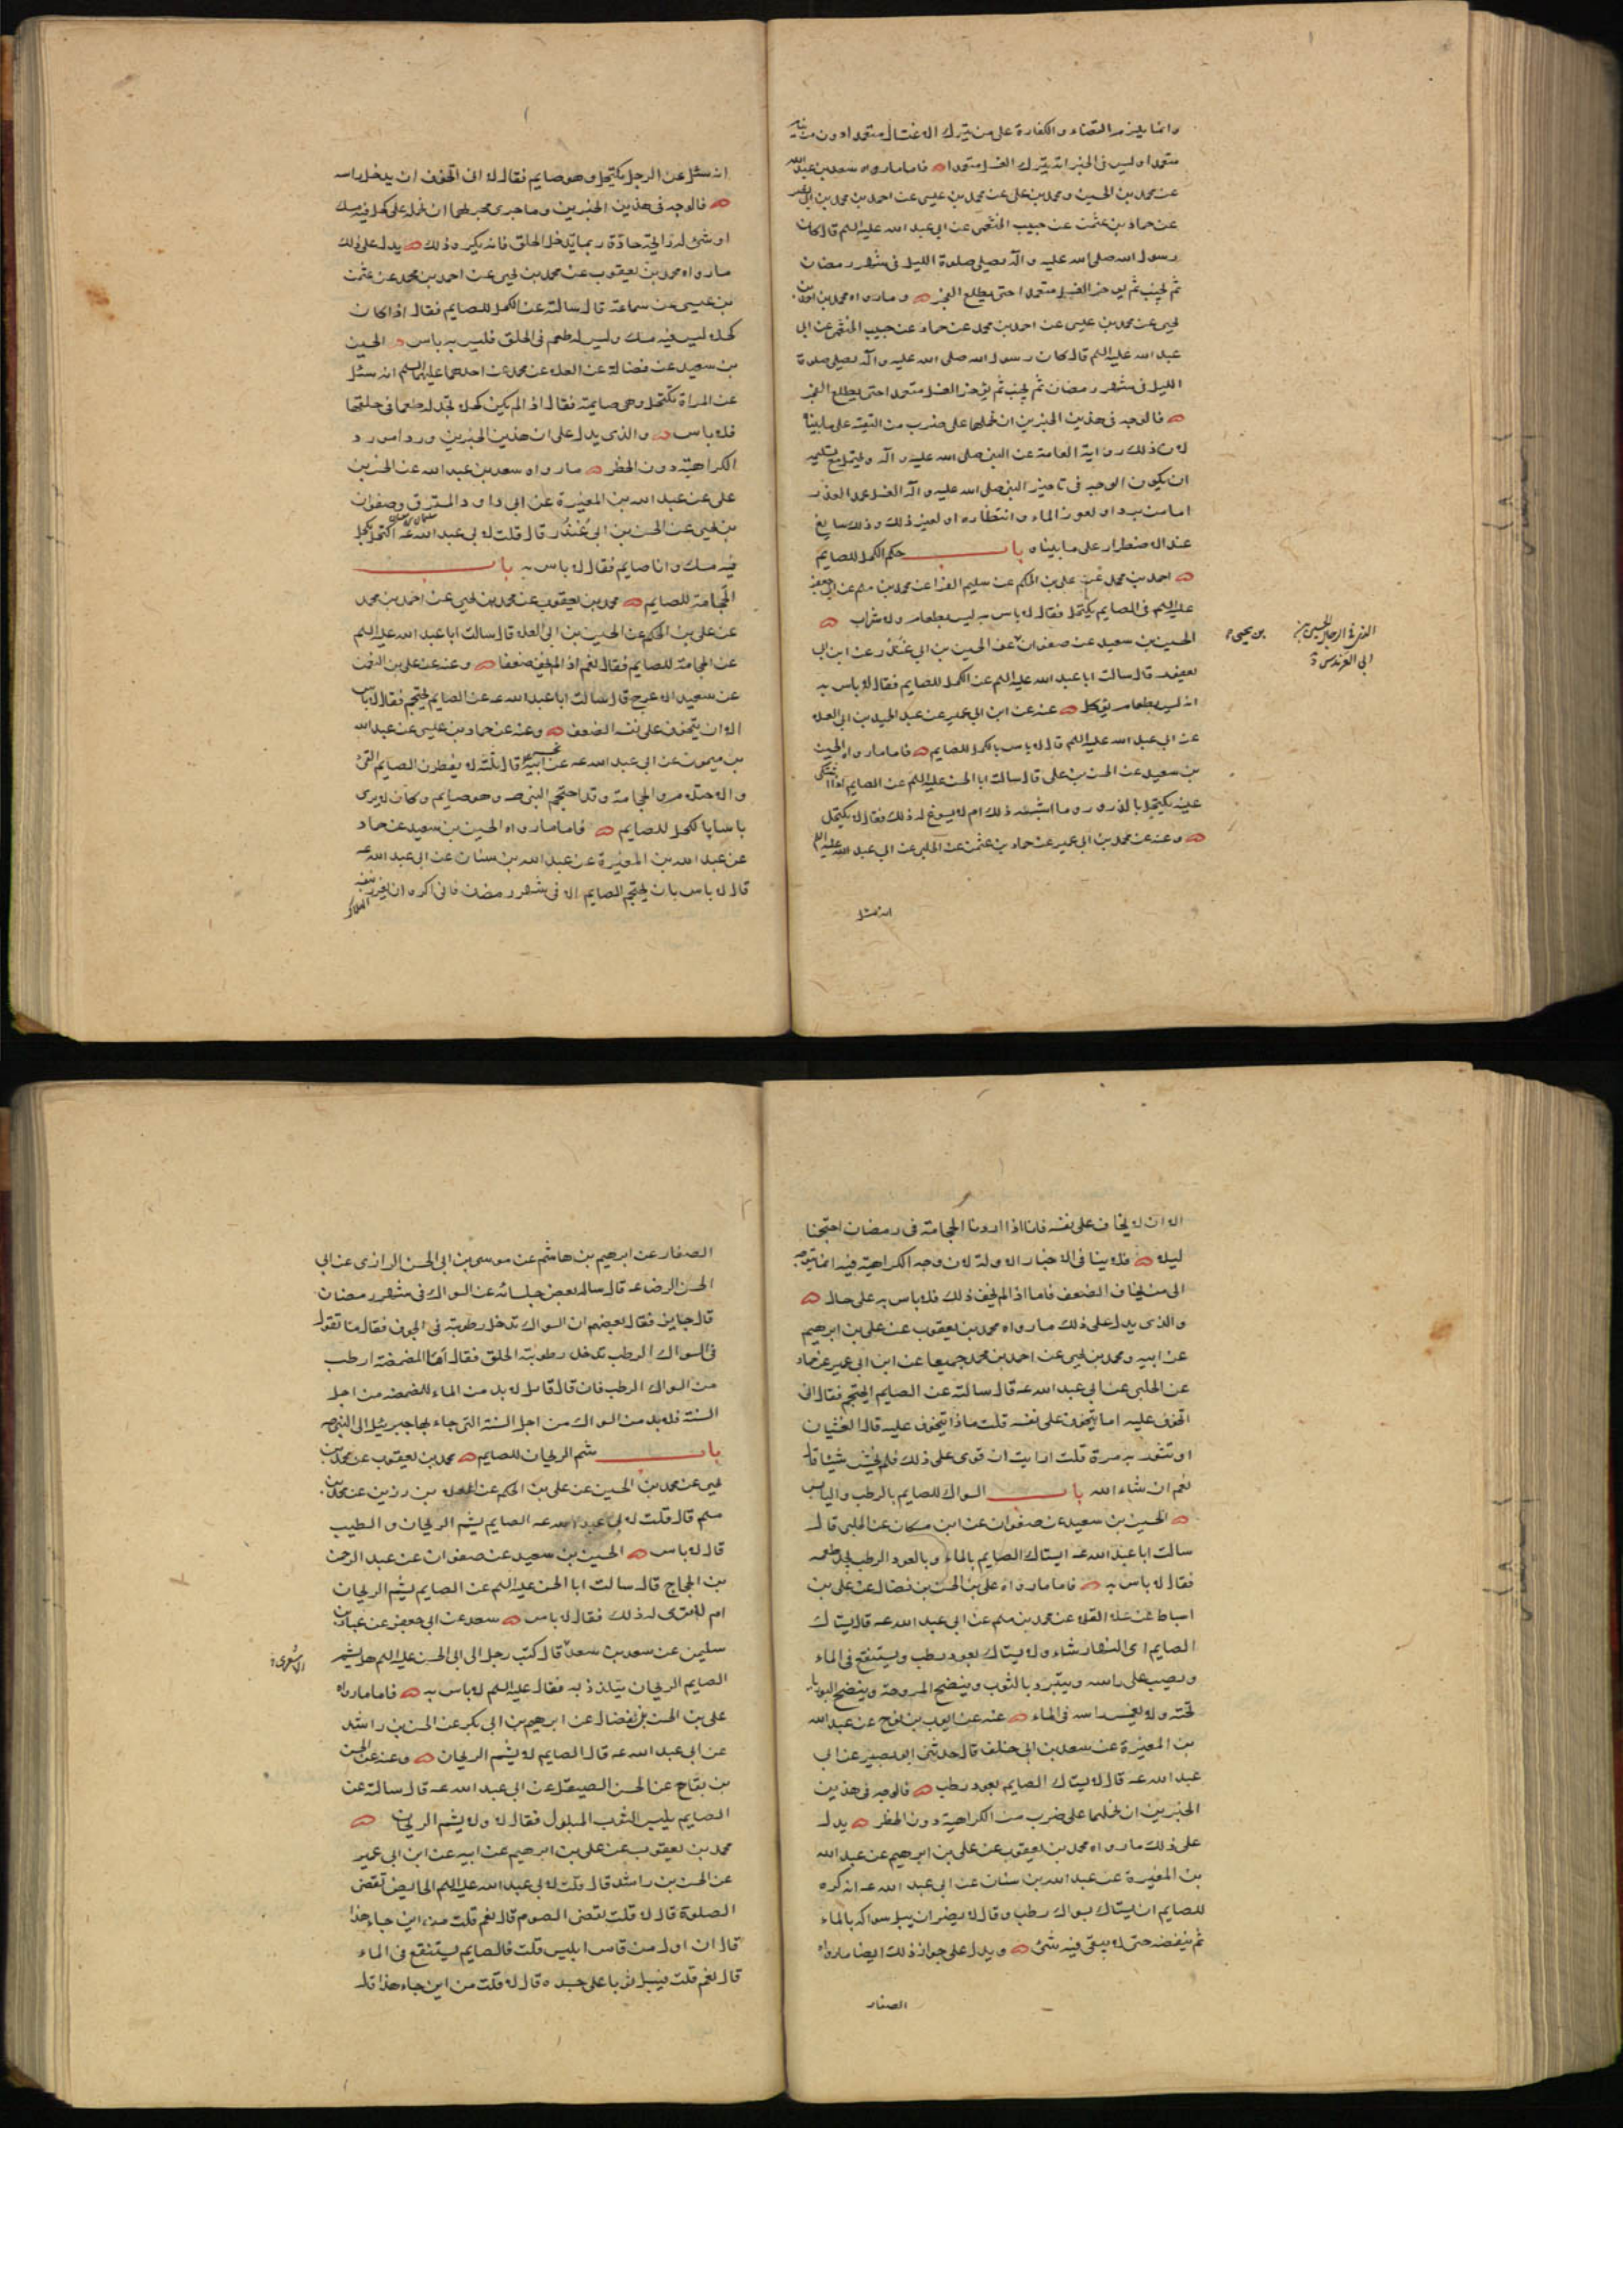 وانما يلزم القضاء والكفارة على من يترك الاغتسال متعمدا دون من
متعمدا وليس فى الخبر انه يترك الغسل متعمدا فاما ما رواه سعد بن عبد الله
عن محمد بن الحسين ومحمد بن على عن محمد بن عيسى عن احمد بن محمد بن ابى نصر
عن حماد بن عثمن عن حبيب الخثعمى عن ابى عبد الله عليه السلم قال كان
رسول الله صلى الله عليه وآله يصلى صلوة الليل فى شهر رمضان
ثم يجنب ثم يوخر الغسل متعمدا حتى يطلع الفجر وما رواه محمد بن احمد بن
يحيى عن محمد بن عيسى عن احمد بن محمد عن حماد عن حبيب الخثعمى عن ابى
عبد الله عليه السلم قال كان رسول الله صلى الله عليه وآله يصلى صلوة
الليل فى شهر رمضان ثم يجنب ثم يؤخر الغسل متعمدا حتى يطلع الفجر
فالوجه فى هذين الخبرين ان نحملهما على ضرب من التقية على ما بيناه
لان ذلك رواية العامة عن النبى صلى الله عليه وآله ويحتمل مع تسليمه
ان يكون الوجه فى تاخير النبى صلى الله عليه وآله الغسل عمدا لعذر
اما من برد او لعوز الماء وانتظاره او لغير ذلك وذلك سايغ
عند الاضطرار على ما بيناه باب حكم الكحل للصايم
احمد بن محمد عن على بن الحكم عن سليم الفرا عن محمد بن مسلم عن ابى جعفر
عليه السلم فى الصايم يكتحل فقال لا باس به ليس بطعام ولا شراب
الحسين بن سعيد عن صفوان عن الحسين بن ابى غندر عن ابن ابى
يعفور قال سالت ابا عبد الله عليه السلم عن الكحل للصايم فقال لا باس به
انه ليس بطعام يؤكل عنه عن ابن ابى عمير عن عبد الحميد بن ابى العلا
عن ابى عبد الله عليه السلم قال لا باس بالكحل للصايم فاما ما رواه الحسين
بن سعيد عن الحسن بن على قال سالت ابا الحسن عليه السلم عن الصايم اذا اشتكى
عينه يكتحل بالذرور وما اشبهه ذلك ام لا يسوغ له ذلك فقال لا يكتحل
وعنه عن محمد بن ابى عمير عن حماد بن عثمن عن الحلبى عن ابى عبد الله عليه السلم
انه سئل
الذى فى الرجال الحسين بن
ابى العرندس
بن يحيى
انه سئل عن الرجل يكتحل وهو صايم فقال لا انى اتخوف ان يدخل راسه
فالوجه فى هذين الخبرين وما جرى مجريهما ان نحمله على كحل فيه مسك
او شئ له رائحة حادة ربما يدخل الحلق فانه يكره ذلك يدل على ذلك
ما رواه محمد بن يعقوب عن محمد بن يحيى عن احمد بن محمد عن عثمن
بن عيسى عن سماعة قال سالته عن الكحل للصايم فقال اذا كان
كحلا ليس فيه مسك وليس له طعم فى الحلق فليس به باس الحسين
بن سعيد عن فضالة عن العلا عن محمد عن احدهما عليهما السلم انه سئل
عن المراة تكتحل وهى صايمة فقال اذا لم يكن كحلا تجد له طعما فى حلقها
فلا باس والذى يدل على ان هذين الخبرين وردا مورد
الكراهية دون الحظر ما رواه سعد بن عبد الله عن الحسن بن
على عن عبد الله بن المغيرة عن ابى داود المسترق وصفوان
بن يحيى عن الحسن بن ابى غندر قال قلت لابى عبد الله عه اكتحل بكحل
فيه مسك وانا صايم فقال لا باس به باب
الحجامة للصايم محمد بن يعقوب عن محمد بن يحيى عن احمد بن محمد
عن على بن الحكم عن الحسين بن ابى العلا قال سالت ابا عبد الله عليه السلم
عن الحجامة للصايم فقال نعم اذا لم يخف ضعفا وعنه عن على بن النعمن
عن سعيد الاعرج قال سالت ابا عبد الله عه عن الصايم يحتجم فقال لا باس
الا ان يتخوف على نفسه الضعف وعنه عن حماد بن عيسى عن عبد الله
بن ميمون عن ابى عبد الله عه عن ابيه قال ثلثة لا يفطرن الصايم القئ
والاحتلام والحجامة وقد احتجم النبى ص وهو صايم وكان لا يرى
باسا بالكحل للصايم فاما ما رواه الحسين بن سعيد عن حماد
عن عبد الله بن المغيرة عن عبد الله بن سنان عن ابى عبد الله عه
قال لا باس بان يحتجم الصايم الا فى شهر رمضان فانى اكره ان يغرر بنفسه
الا ان لا يخاف على نفسه فانا اذا اردنا الحجامة فى رمضان احتجمنا
ليلا فلا ينافى الاخبار الاولة لان وجه الكراهية فيه انما يتوجه
الى من يخاف الضعف فاما اذا لم يخف ذلك فلا باس به على حال
والذى يدل على ذلك ما رواه محمد بن يعقوب عن على بن ابرهيم
عن ابيه ومحمد بن يحيى عن احمد بن محمد جميعا عن ابن ابى عمير عن حماد
عن الحلبى عن ابى عبد الله عه قال سالته عن الصايم ايحتجم فقال انى
اتخوف عليه اما يتخوف على نفسه قلت ماذا يتخوف عليه قال الغشيان
او تثور به مرة قلت ارايت ان قوى على ذلك فلم يخش شيئا قال
نعم ان شاء الله باب السواك للصايم بالرطب واليابس
الحسين بن سعيد عن صفوان عن ابن مسكان عن الحلبى قال
سالت ابا عبد الله عه ايستاك الصايم بالماء وبالعود الرطب يجد طعمه
فقال لا باس به فاما ما رواه على بن الحسن بن فضال عن على بن
اسباط عن علا القلا عن محمد بن مسلم عن ابى عبد الله عه قال يستاك
الصايم اى النهار شاء ولا يستاك بعود رطب ويستنقع فى الماء
ويصب على راسه ويتبرد بالثوب وينضح المروحة وينضح البوريا
تحته ولا يغمس راسه فى الماء عنه عن ايوب بن نوح عن عبد الله
بن المغيرة عن سعد بن ابى خلف قال حدثنى ابو بصير عن ابى
عبد الله عه قال لا يستاك الصايم بعود رطب فالوجه فى هذين
الخبرين ان نحملهما على ضرب من الكراهية دون الحظر يدل
على ذلك ما رواه محمد بن يعقوب عن على بن ابرهيم عن عبد الله
بن المغيرة عن عبد الله بن سنان عن ابى عبد الله عه انه كره
للصايم ان يستاك بسواك رطب وقال لا يضر ان يبل سواكه بالماء
ثم ينفضه حتى لا يبقى فيه شئ ويدل على جواز ذلك ايضا ما رواه
الصفار
الصفار عن ابرهيم بن هاشم عن موسى بن ابى الحسن الرازى عن ابى
الحسن الرضا عه قال ساله بعض جلسائه عن السواك فى شهر رمضان
قال جايز فقال بعضهم ان السواك تدخل رطوبته فى الجوف فقال ما تقول
فى السواك الرطب تدخل رطوبته الحلق فقال الماء للمضمضة ارطب
من السواك الرطب فان قال قائل لا بد من الماء للمضمضة من اجل
السنة فلا بد من السواك من اجل السنة التى جاء بها جبرئيل الى النبى ص
باب شم الريحان للصايم محمد بن يعقوب عن محمد بن
يحيى عن محمد بن الحسين عن على بن الحكم عن العلا بن رزين عن محمد بن
مسلم قال قلت لابى عبد الله عه الصايم يشم الريحان والطيب
قال لا باس الحسين بن سعيد عن صفوان عن عبد الرحمن
بن الحجاج قال سالت ابا الحسن عليه السلم عن الصايم يشم الريحان
ام لا ترى له ذلك فقال لا باس سعد عن ابى جعفر عن عباد بن
سليمن عن سعد بن سعد قال كتب رجل الى ابى الحسن عليه السلم هل يشم
الاشعرى
الصايم الريحان يتلذذ به فقال عليه السلم لا باس به فاما ما رواه
على بن الحسن بن فضال عن ابرهيم بن ابى بكر عن الحسن بن راشد
عن ابى عبد الله عه قال الصايم لا يشم الريحان وعنه عن الحسن
بن بقاح عن الحسن الصيقل عن ابى عبد الله عه قال سالته عن
الصايم يلبس الثوب المبلول فقال لا ولا يشم الريحان
محمد بن يعقوب عن على بن ابرهيم عن ابيه عن ابن ابى عمير
عن الحسن بن راشد قال قلت لابى عبد الله عليه السلم الحايض تقضى
الصلوة قال لا قلت تقضى الصوم قال نعم قلت من اين جاء هذا
قال ان اول من قاس ابليس قلت فالصايم يستنقع فى الماء
قال نعم قلت فيبل ثوبا على جسده قال لا قلت من اين جاء هذا قال